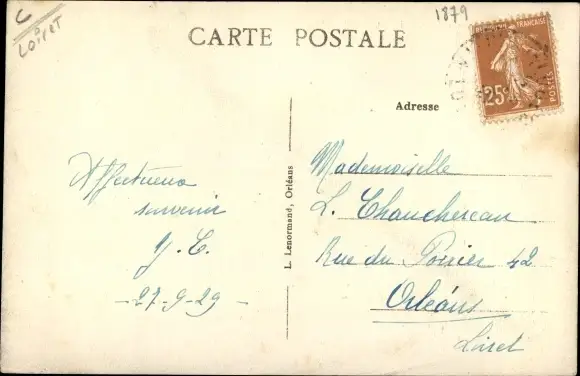 C
Loiret
1879
CARTE POSTALE
RÉPUBLIQUE FRANÇAISE
25c
POSTES
Adresse
Affectueux
souvenir
Y. C.
-27-9-29-
L. Lenormand, Orléans
Mademoiselle
L. Chauchereau
Rue du Poirier 42
Orléans
Loiret